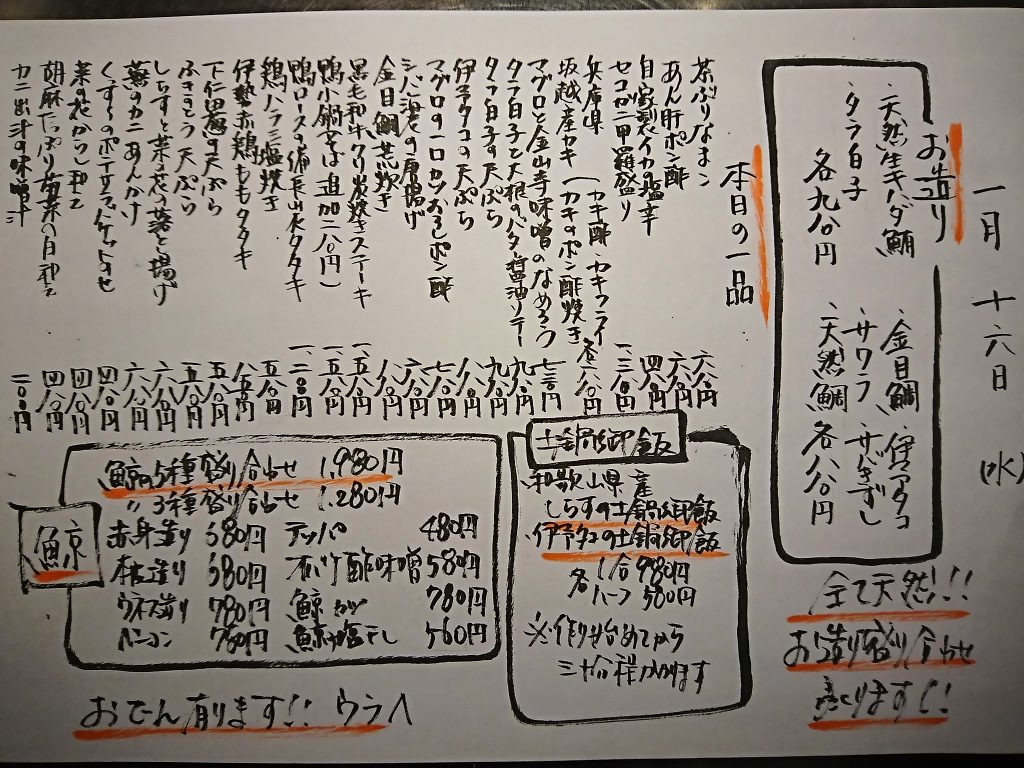 一月 十六日 (水)
お造り
・天然生キハダ鮪
・タラ白子
各九八〇円
・金目鯛 ・伊予タコ
・サワラ
・天然鯛 各八八〇円
全て天然!!
お造り盛り合わせ
有ります!!
本日の一品
茶ぶりなまこ 六八〇円
あん肝ポン酢 六八〇円
自家製イカの塩辛 四八〇円
セコガニ甲羅盛り 一、三八〇円
兵庫県
坂越産カキ (カキ酢・カキフライ・カキのポン酢焼き 各八八〇円
マグロと金山寺味噌のなめろう 七三〇円
タラ白子と大根のバター醤油ソテー 九八〇円
タラ白子の天ぷら 九八〇円
伊予タコの天ぷら 八八〇円
マグロの一口カツおろしポン酢 七八〇円
シバ海老の唐揚げ 六八〇円
金目鯛煮炊き 八八〇円
黒毛和牛クリ炭焼きステーキ 一、五八〇円
鴨小鍋(そば追加二八〇円) 一、五八〇円
鴨ロースの備長山水タタキ 一、二八〇円
鶏ハラミ塩焼き 五八〇円
伊勢赤鶏ももタタキ 八八〇円
下仁田葱の天ぷら 五八〇円
ふきのとう天ぷら 五八〇円
しらすと菜の花の落とし揚げ 六八〇円
蕪のカニあんかけ 六八〇円
のポテサラ バケットのせ 四八〇円
菜の花からし和え 四八〇円
胡麻たっぷり 菜の白和え 四八〇円
カニ出汁の味噌汁 三〇〇円
土鍋御飯
和歌山県産
しらすの土鍋御飯
伊予タコの土鍋御飯
各 1合 980円
ハーフ 580円
※作り始めてから
三十分程かかります
鯨
鯨の5種盛り合わせ 1,980円
〃 3種盛り合わせ 1,280円
赤身造り 580円 テッパ 480円
本皮造り 580円 酢味噌 580円
ウネス造り 780円 鯨カツ 780円
ベーコン 760円 鯨塩干し 560円
おでん有ります!! ウラへ